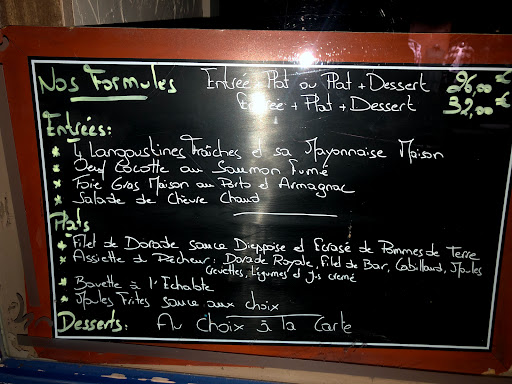 Nos Formules Entrée + Plat ou Plat + Dessert 26,00 €
Entrée + Plat + Dessert 32,00 €
Entrées:
* Langoustines Fraîches et sa Mayonnaise Maison
* Oeuf Cocotte au Saumon Fumé
* Foie Gras Maison au Porto et Armagnac
* Salade de Chèvre Chaud
Plats
* Filet de Dorade sauce Dieppoise et Ecrasé de Pommes de Terre
* Assiette du Pêcheur: Dorade Royale, Filet de Bar, Cabillaud, Moules
Crevettes, Légumes et jus cremé
* Bavette à l'Echalote
* Moules Frites sauce aux choix
Desserts: Au Choix à la Carte